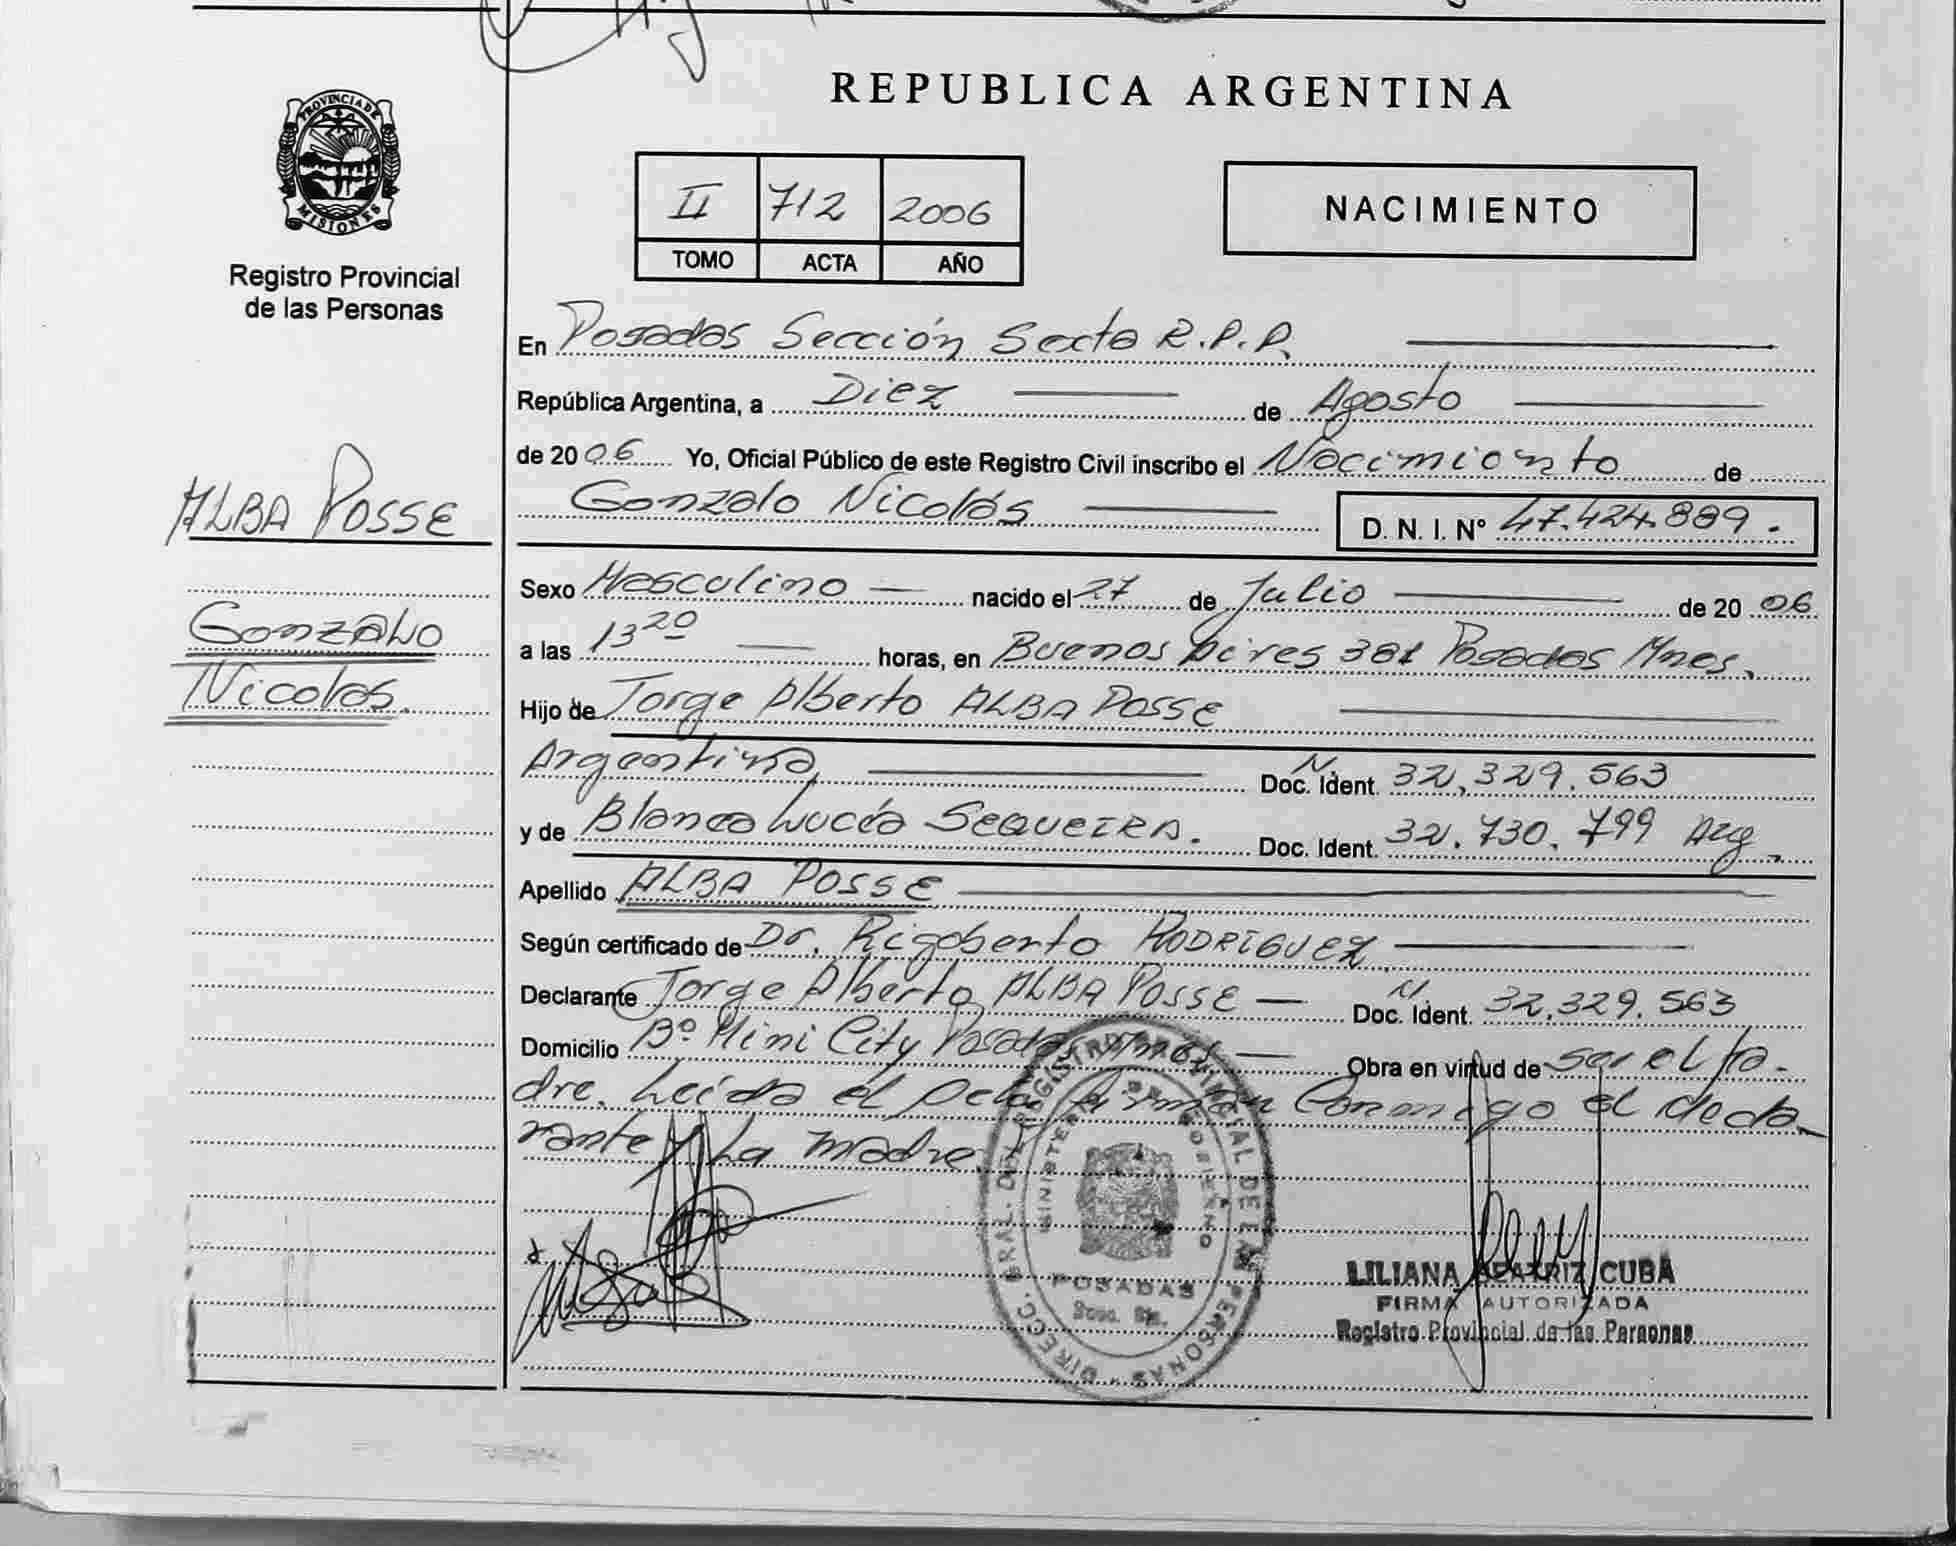 REPUBLICA ARGENTINA
PROVINCIA DE
MISIONES
Registro Provincial
de las Personas
II 712 2006
TOMO ACTA AÑO
NACIMIENTO
En Posadas Sección Sexta R.P.P.
República Argentina, a Diez de Agosto
de 2006 Yo, Oficial Público de este Registro Civil inscribo el Nacimiento de
Gonzalo Nicolás D. N. I. Nº 47.424.889.
ALBA POSSE
Gonzalo
Nicolás.
Sexo Masculino nacido el 27 de Julio de 2006
a las 13 20 horas, en Buenos Aires 381 Posadas Mnes.
Hijo de Jorge Alberto ALBA POSSE
Argentina Doc. Ident. 32.329.563
y de Blanca Lucía SEQUEIRA. Doc. Ident. 32.730.799 Arg.
Apellido ALBA POSSE
Según certificado de Dr. Rigoberto RODRIGUEZ
Declarante Jorge Alberto ALBA POSSE Doc. Ident. 32.329.563
Domicilio Bº Mini City Posadas Mnes Obra en virtud de ser el pa-
dre. Leída el acta firman conmigo el decla-
rante y la madre.
DIRECC. GRAL. DEL REGISTRO PROVINCIAL DE LAS PERSONAS
MINISTERIO DE GOBIERNO
POSADAS
Secc. 6ta.
LILIANA BEATRIZ CUBA
FIRMA AUTORIZADA
Registro Provincial de las Personas